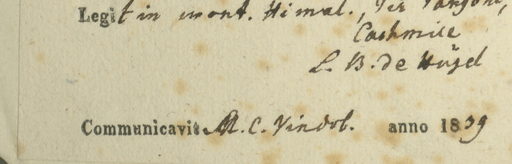 Legit in mont. Himal.,
Cashmire
L. B. de Hügel
Communicavit M. C. Vindob. anno 1839